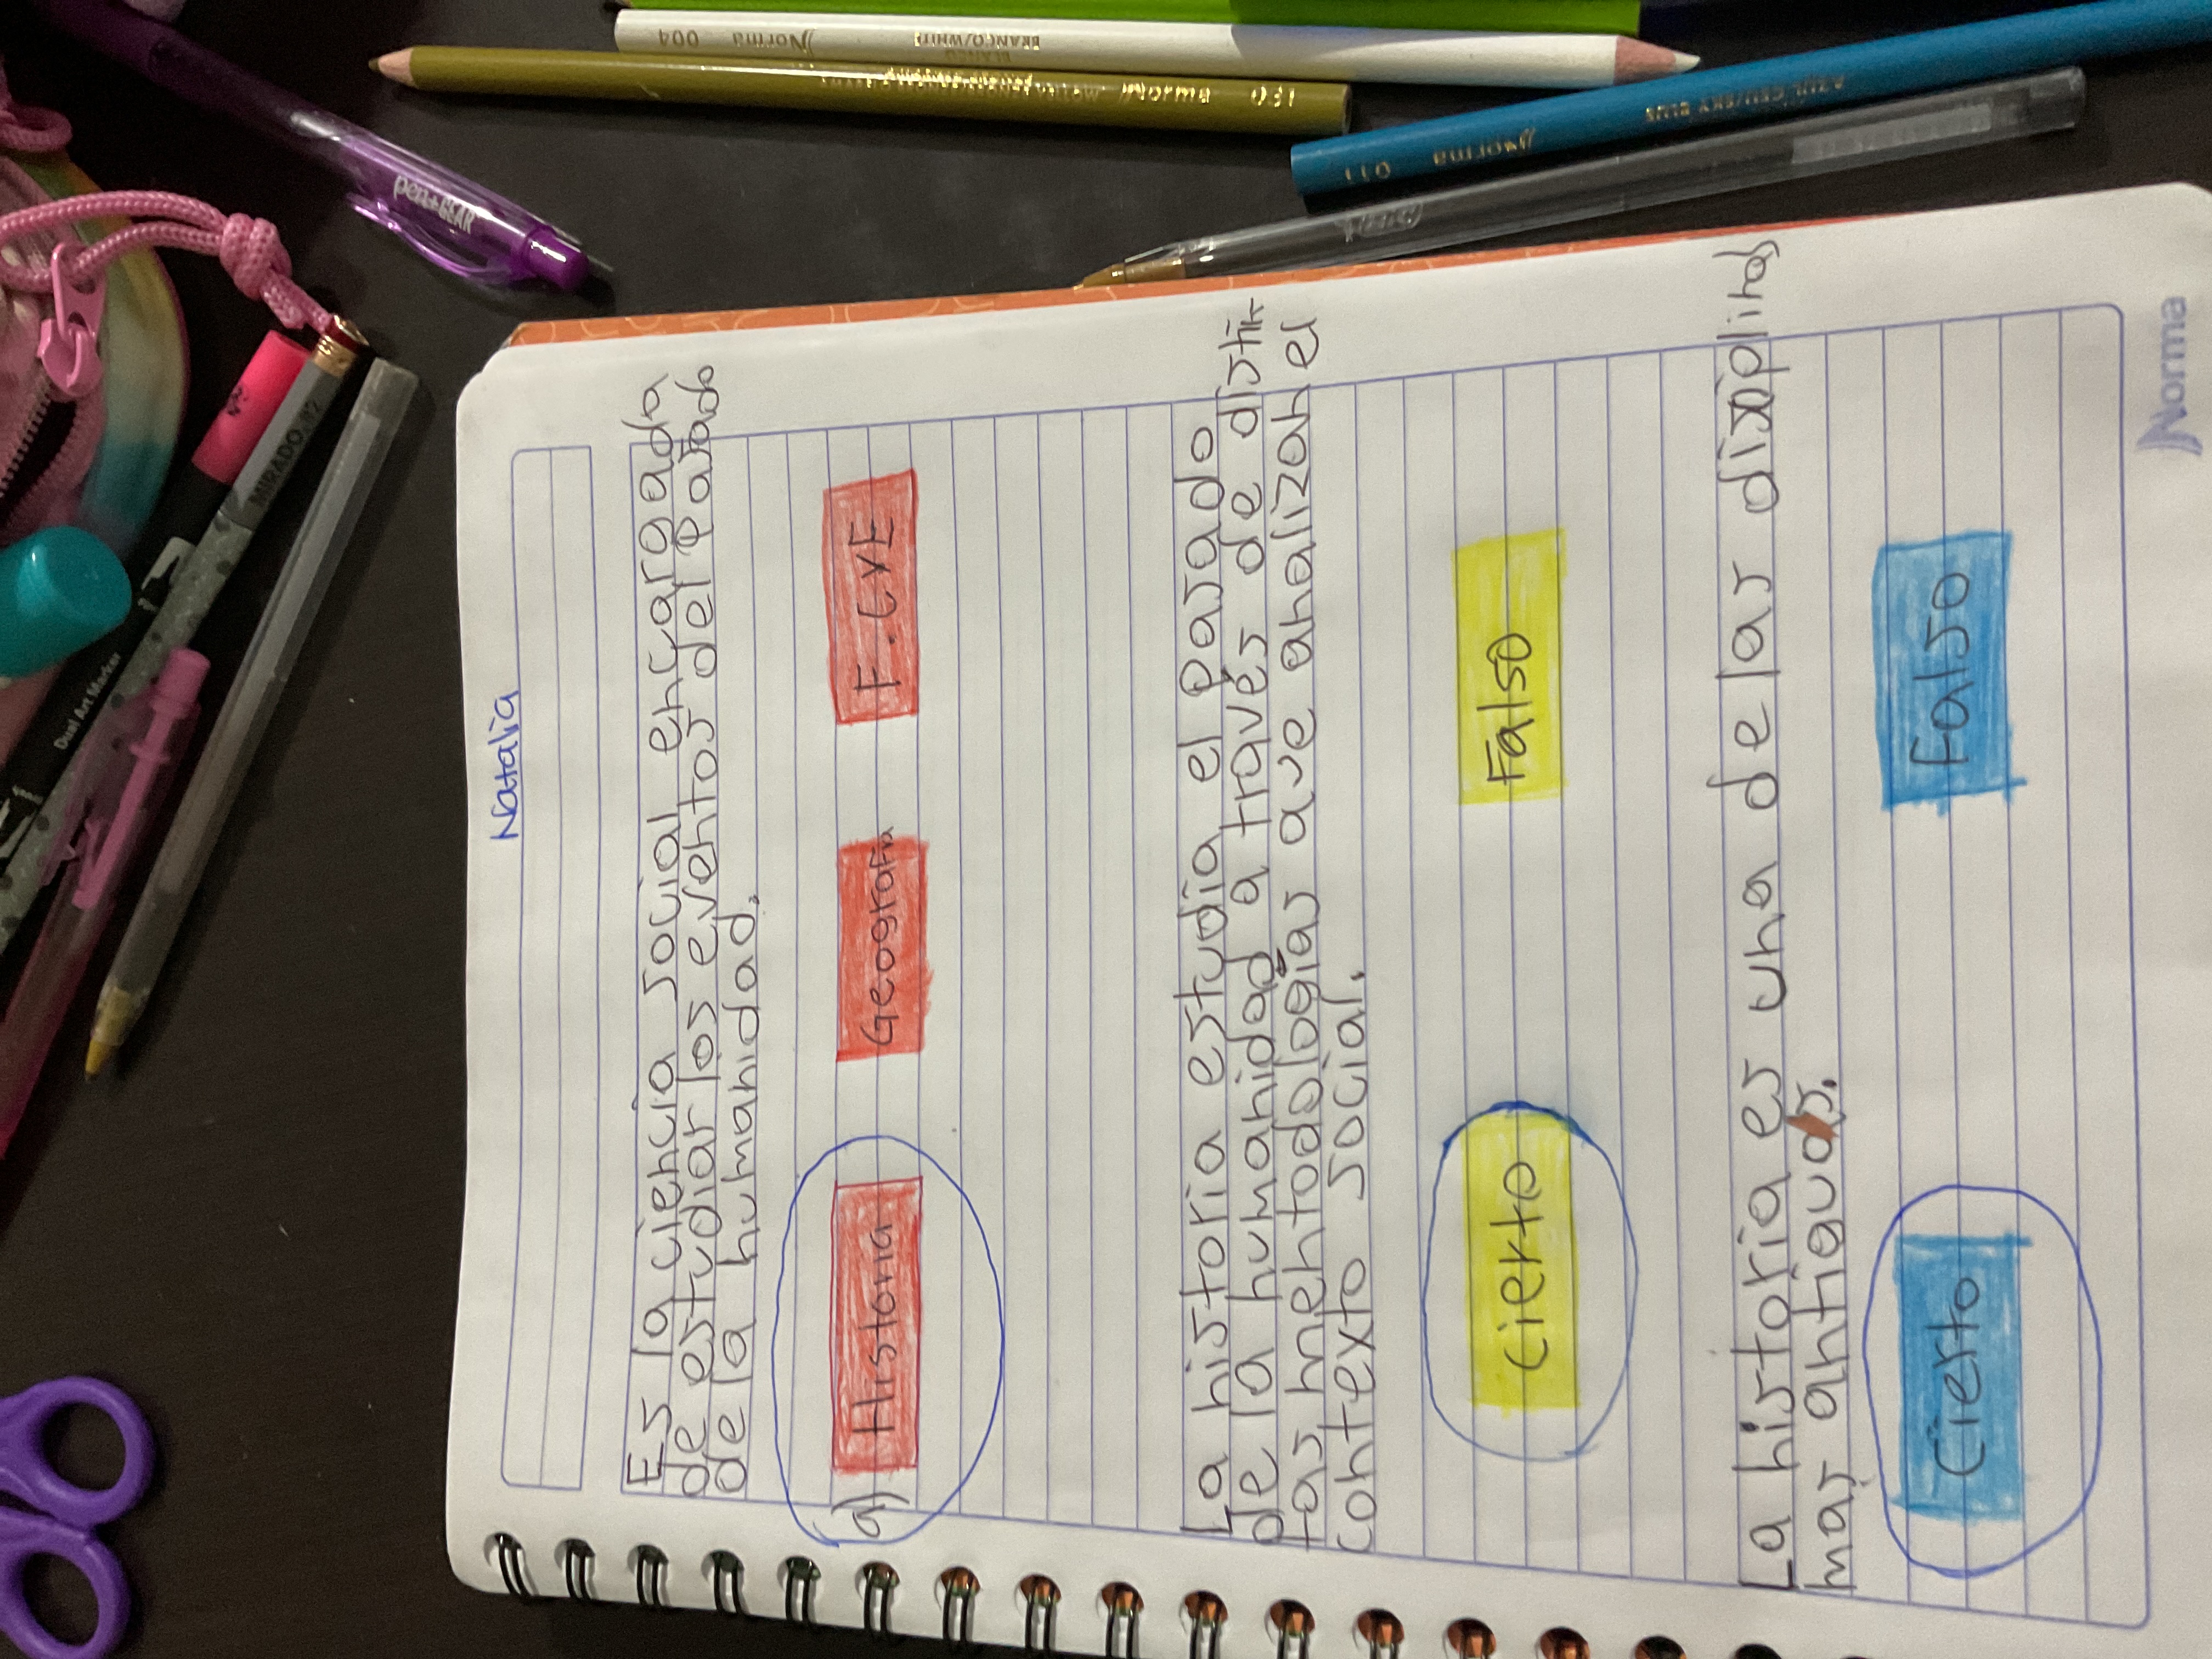 Natalia
Es la ciencia social encargada
de estudiar los eventos del pasado
de la humanidad.
a) Historia Geografía F.CyE
La historia estudia el pasado
de la humanidad a través de distin
tas mentodologías que analizan el
contexto social.
Cierto Falso
La historia es una de las disiplinas
mas antiguas.
Cierto Falso
Norma
pen+GEAR
MIRADO
Dual Art Marker
004 Norma BLANCO BRANCO/WHITE
130 Norma
011 Norma AZUL CELI/SKY BLUE